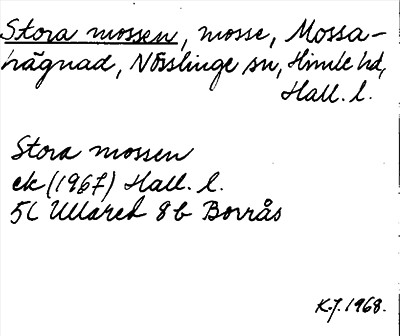 Stora mossen, mosse, Mossa-
hägnad, Nösslinge sn, Himle hd,
Hall. l.
Stora mossen
ek (1967) Hall. l.
5C Ullared 8b Borrås
K.J. 1968.